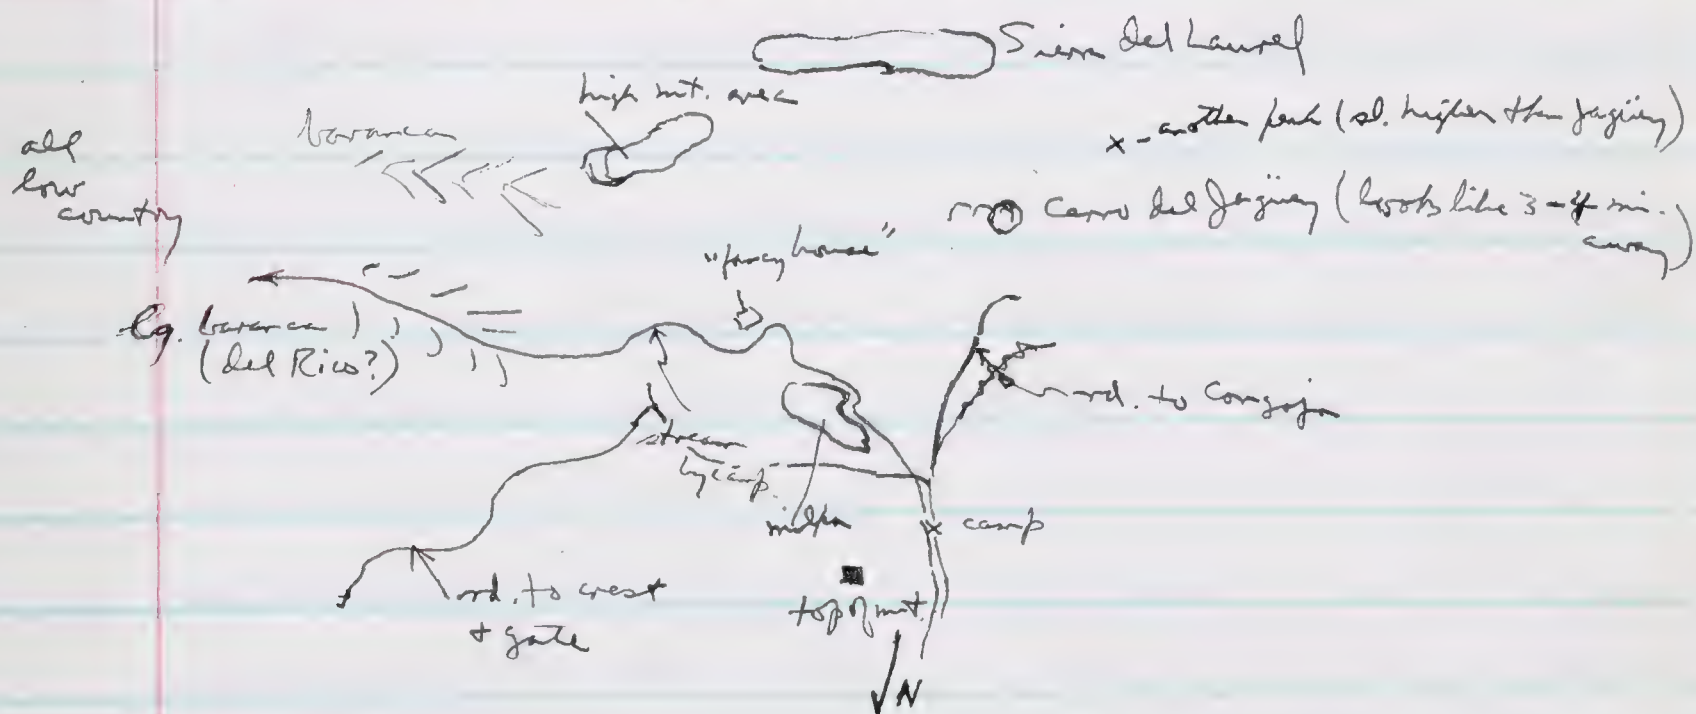 Sierra del Laurel
high mt. area
x - another peak (sl. higher than Jagüey)
baranca
all
low
country
Cerro del Jagüey (looks like 3-4 mi.
away)
"fancy house"
Lg. baranca
(del Rico?)
rd. to Congoja
stream
by camp.
milpa
x camp
rd. to crest
+ gate
top of mt.
N